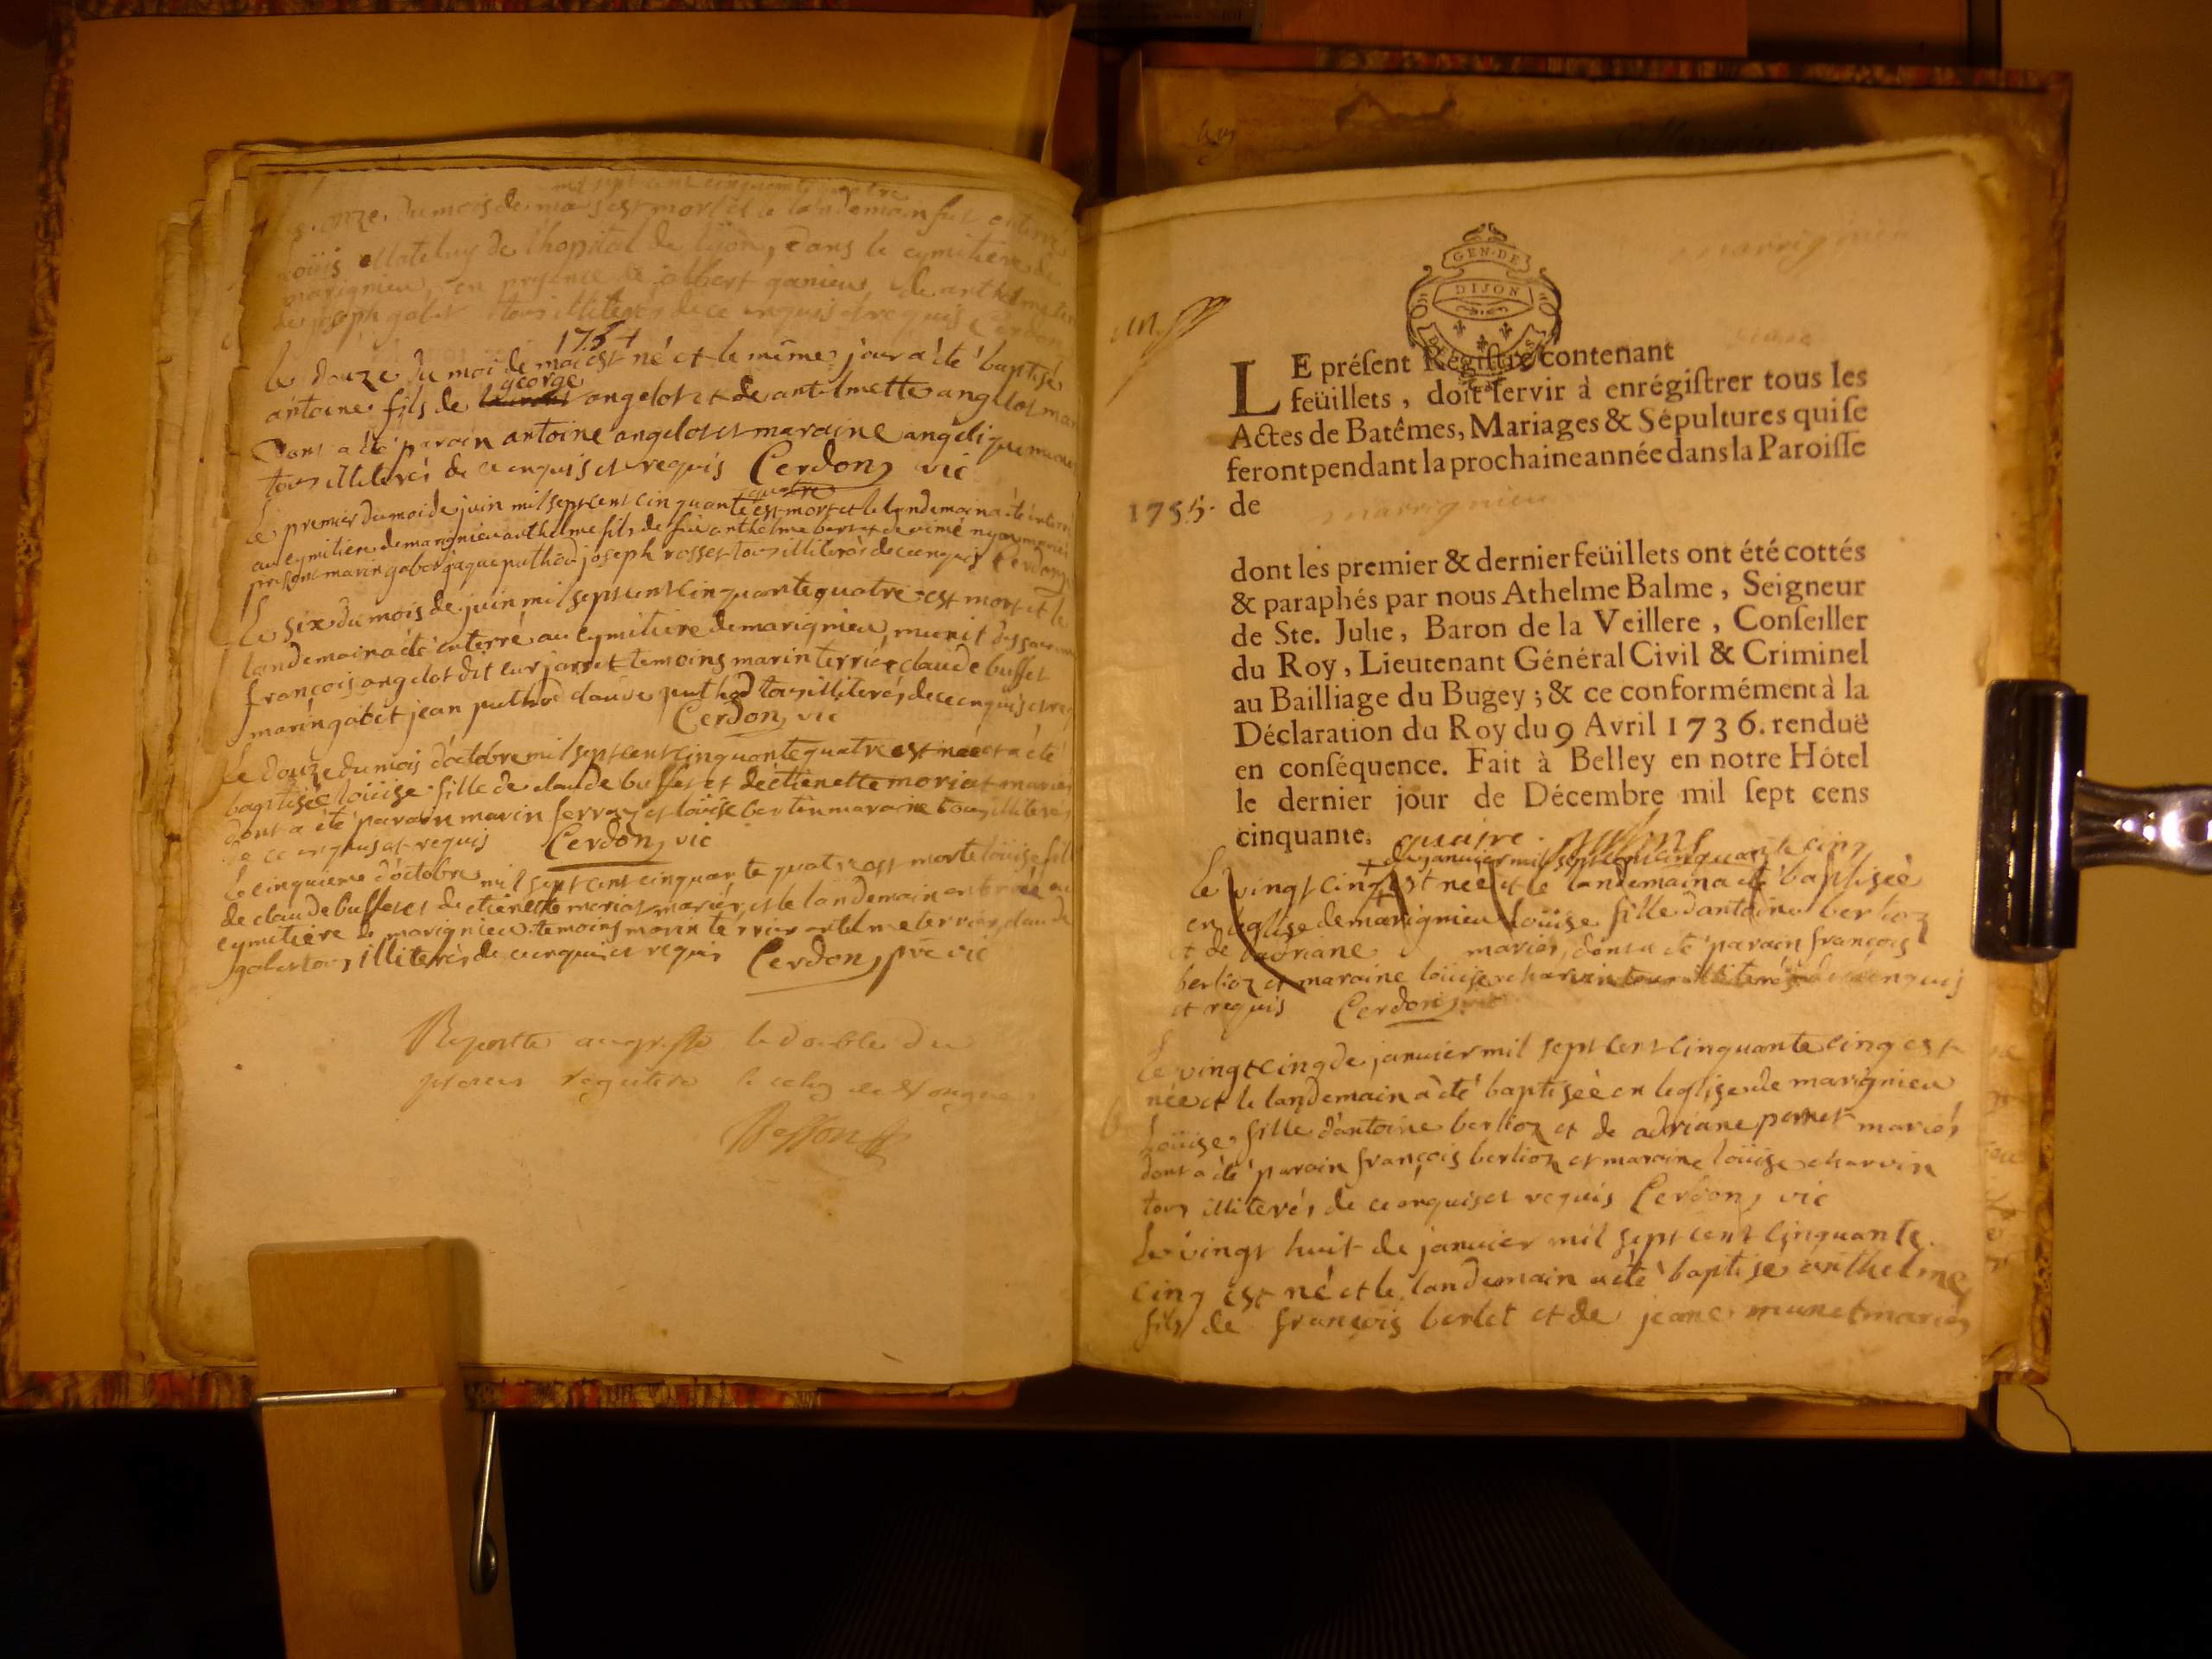 mil sept cent cinquante quatre
onze du mois de mai est mort et le landemain fut enterré
Loüis de l'hopital de lijon, dans le cymitiere de
marignieu, en presence de albert ganieu, de anthelme
de joseph gabet tous illiterés de ce enquis et requis Cerdon
1754
le douze du moi de mai est né et le même jour a été baptisé
george
antoine fils de angelot et de antelmette angelot
Dont a été parain antoine angelot et maraine angelique
tous illiterés de ce enquis et requis Cerdon, vic
quatre
Le premier du moi de juin mil sept cent cinquante est mort et le landemain a été
au cymitiere de marignieu anthelme fils de feu anthelme
present marin gabet jaque puthod joseph rosset tous illiterés de ce enquis Cerdon
Le six du mois de juin mil sept cent cinquante quatre est mort et le
landemain a été enterré au cymitiere de marignieu, munit des
françois angelot dit temoins marin terrier claude buffet
marin gabet jean puthod claude puthod tous illiterés de ce enquis et
Cerdon, vic
Le douze du mois d'octobre mil sept cent cinquante quatre est née et a été
baptisée loüise fille de claude buffet et d'etienette moriat mariés
dont a été parain marin et loüise bertin maraine tous illiterés
de ce enquis et requis Cerdon, vic
Le cinquieme d'octobre mil sept cent cinquante quatre est morte loüise
de claude buffet et d'etienette moriat mariés, et le landemain enterrée au
cymitiere de marignieu temoins marin terrier antelme terrier, claude
gabet tous illiterés de ce enquis et requis Cerdon, pre vic
au greffe le double du
GEN·DE
DIJON
LE préſent Régiſtre contenant
feüillets, doit ſervir à enrégiſtrer tous les
Actes de Batêmes, Mariages & Sépultures qui ſe
feront pendant la prochaine année dans la Paroiſſe
1755. de marrignieu
dont les premier & dernier feüillets ont été cottés
& paraphés par nous Athelme Balme, Seigneur
de Ste. Julie, Baron de la Veillere, Conſeiller
du Roy, Lieutenant Général Civil & Criminel
au Bailliage du Bugey; & ce conformément à la
Déclaration du Roy du 9 Avril 1736. renduë
en conſéquence. Fait à Belley en notre Hôtel
le dernier jour de Décembre mil ſept cens
cinquante. quatre.
+ de janvier mil sept cent cinquante cinq
Le vingt cinq est née et le landemain a été baptisée
en leglise de marignieu loüise fille d'antoine berlioz
et de adriane mariés, dont a été parain françois
berlioz et maraine loüise charvin tous illiterés de ce enquis
et requis Cerdon,
Le vingt cinq de janvier mil sept cent cinquante cinq est
née et le landemain a été baptisée en leglise de marignieu
Loüise, fille d'antoine berlioz et de adriane pernet mariés
dont a été parain françois berlioz et maraine loüise charvin
tous illiterés de ce enquis et requis Cerdon, vic
Le vingt huit de janvier mil sept cent cinquante
cinq est né et le landemain a été baptisé anthelme
fils de françois bertet et de jeane munet mariés